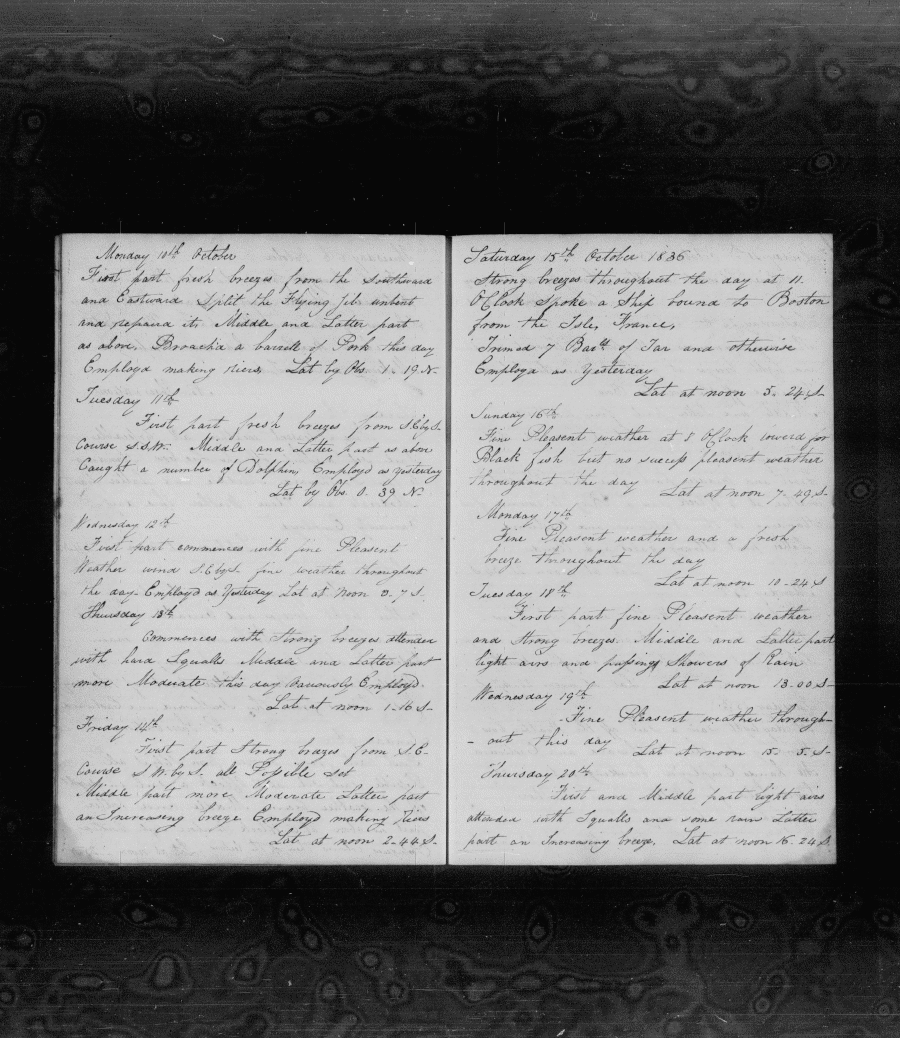 Monday 10th October
First part fresh breezes from the Southward
and Eastward Split the Flying jib unbent
and repaird it, Middle and Latter part
as above, Broach'd a barrell of Pork this day
Employd making Lat by Obs 1-19 N-
Tuesday 11th
First part fresh breezes from S.E.by.S.
Course S.S.W. Middle and Latter part as above
Caught a number of Dolphin, Employd as yesterday
Lat by Obs. 0. 39 N-
Wednesday 12th
First part commences with fine Pleasent
Weather wind S.E.by.S. fine weather throughout
the day- Employd as Yesterday Lat at Noon 0-7 S.
Thursday 13th
Commences with Strong breezes attended
with hard Squalls Middle and Latter part
more Moderate this day variously Employd.
Lat at noon 1-16 S-
Friday 14th
First part Strong breezes from S.E-
Course S.W.by.S. all Possible set
Middle part more Moderate Latter part
an Increasing breeze Employd making
Lat at noon 2-44 S-
Saturday 15th October 1836
Strong breezes throughout the day at 11.
O'Clock Spoke a Ship bound to Boston
from the Isle, France,
Trimed 7 of Tar and otherwise
Employd as Yesterday
Lat at noon 5. 24 S-
Sunday 16th
Fine Pleasent weather at 8 O'Clock lowerd for
Black fish but no sucess pleasent weather
throughout the day
Lat at noon 7-49 S-
Monday 17th
Fine Pleasent weather and a fresh
breeze throughout the day
Lat at noon 10-24 S
Tuesday 18th
First part fine Pleasent weather
and Strong breezes. Middle and Latter part
light airs and passing Showers of Rain
Lat at noon 13-00 S-
Wednesday 19th
-Fine Pleasent weather through-
- out this day
Lat at noon 15. 5. S-
Thursday 20th
First and Middle part light airs
attended with Squalls and some rain Latter
part an Increasing breeze. Lat at noon 16-24 S.